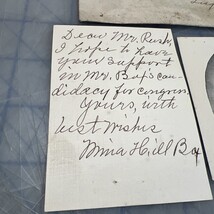 Dear Mr. Rusk,
I hope to have
your support
in Mr. Bax's can-
didacy for congress
Yours, with
best wishes
Mina Hill Bax